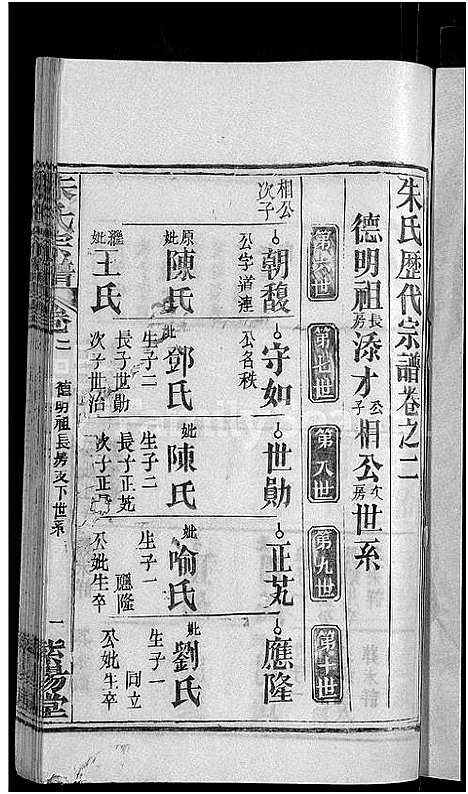 朱氏歷代宗譜卷之二
德明祖長房添才公子相公次房世系
第六世
第七世
第八世
第九世
第十世
相公次子
朝馥
公字道連
原妣陳氏
繼妣王氏
守如
公名秩
妣鄧氏
生子二
長子世勛
次子世治
世勛
妣陳氏
生子二
長子正芃
次子正
正芃
妣喻氏
生子一
應隆
公妣生卒
應隆
妣劉氏
生子一
同立
公妣生卒
朱氏宗譜
卷二
德明祖長房支下世系
一
堂